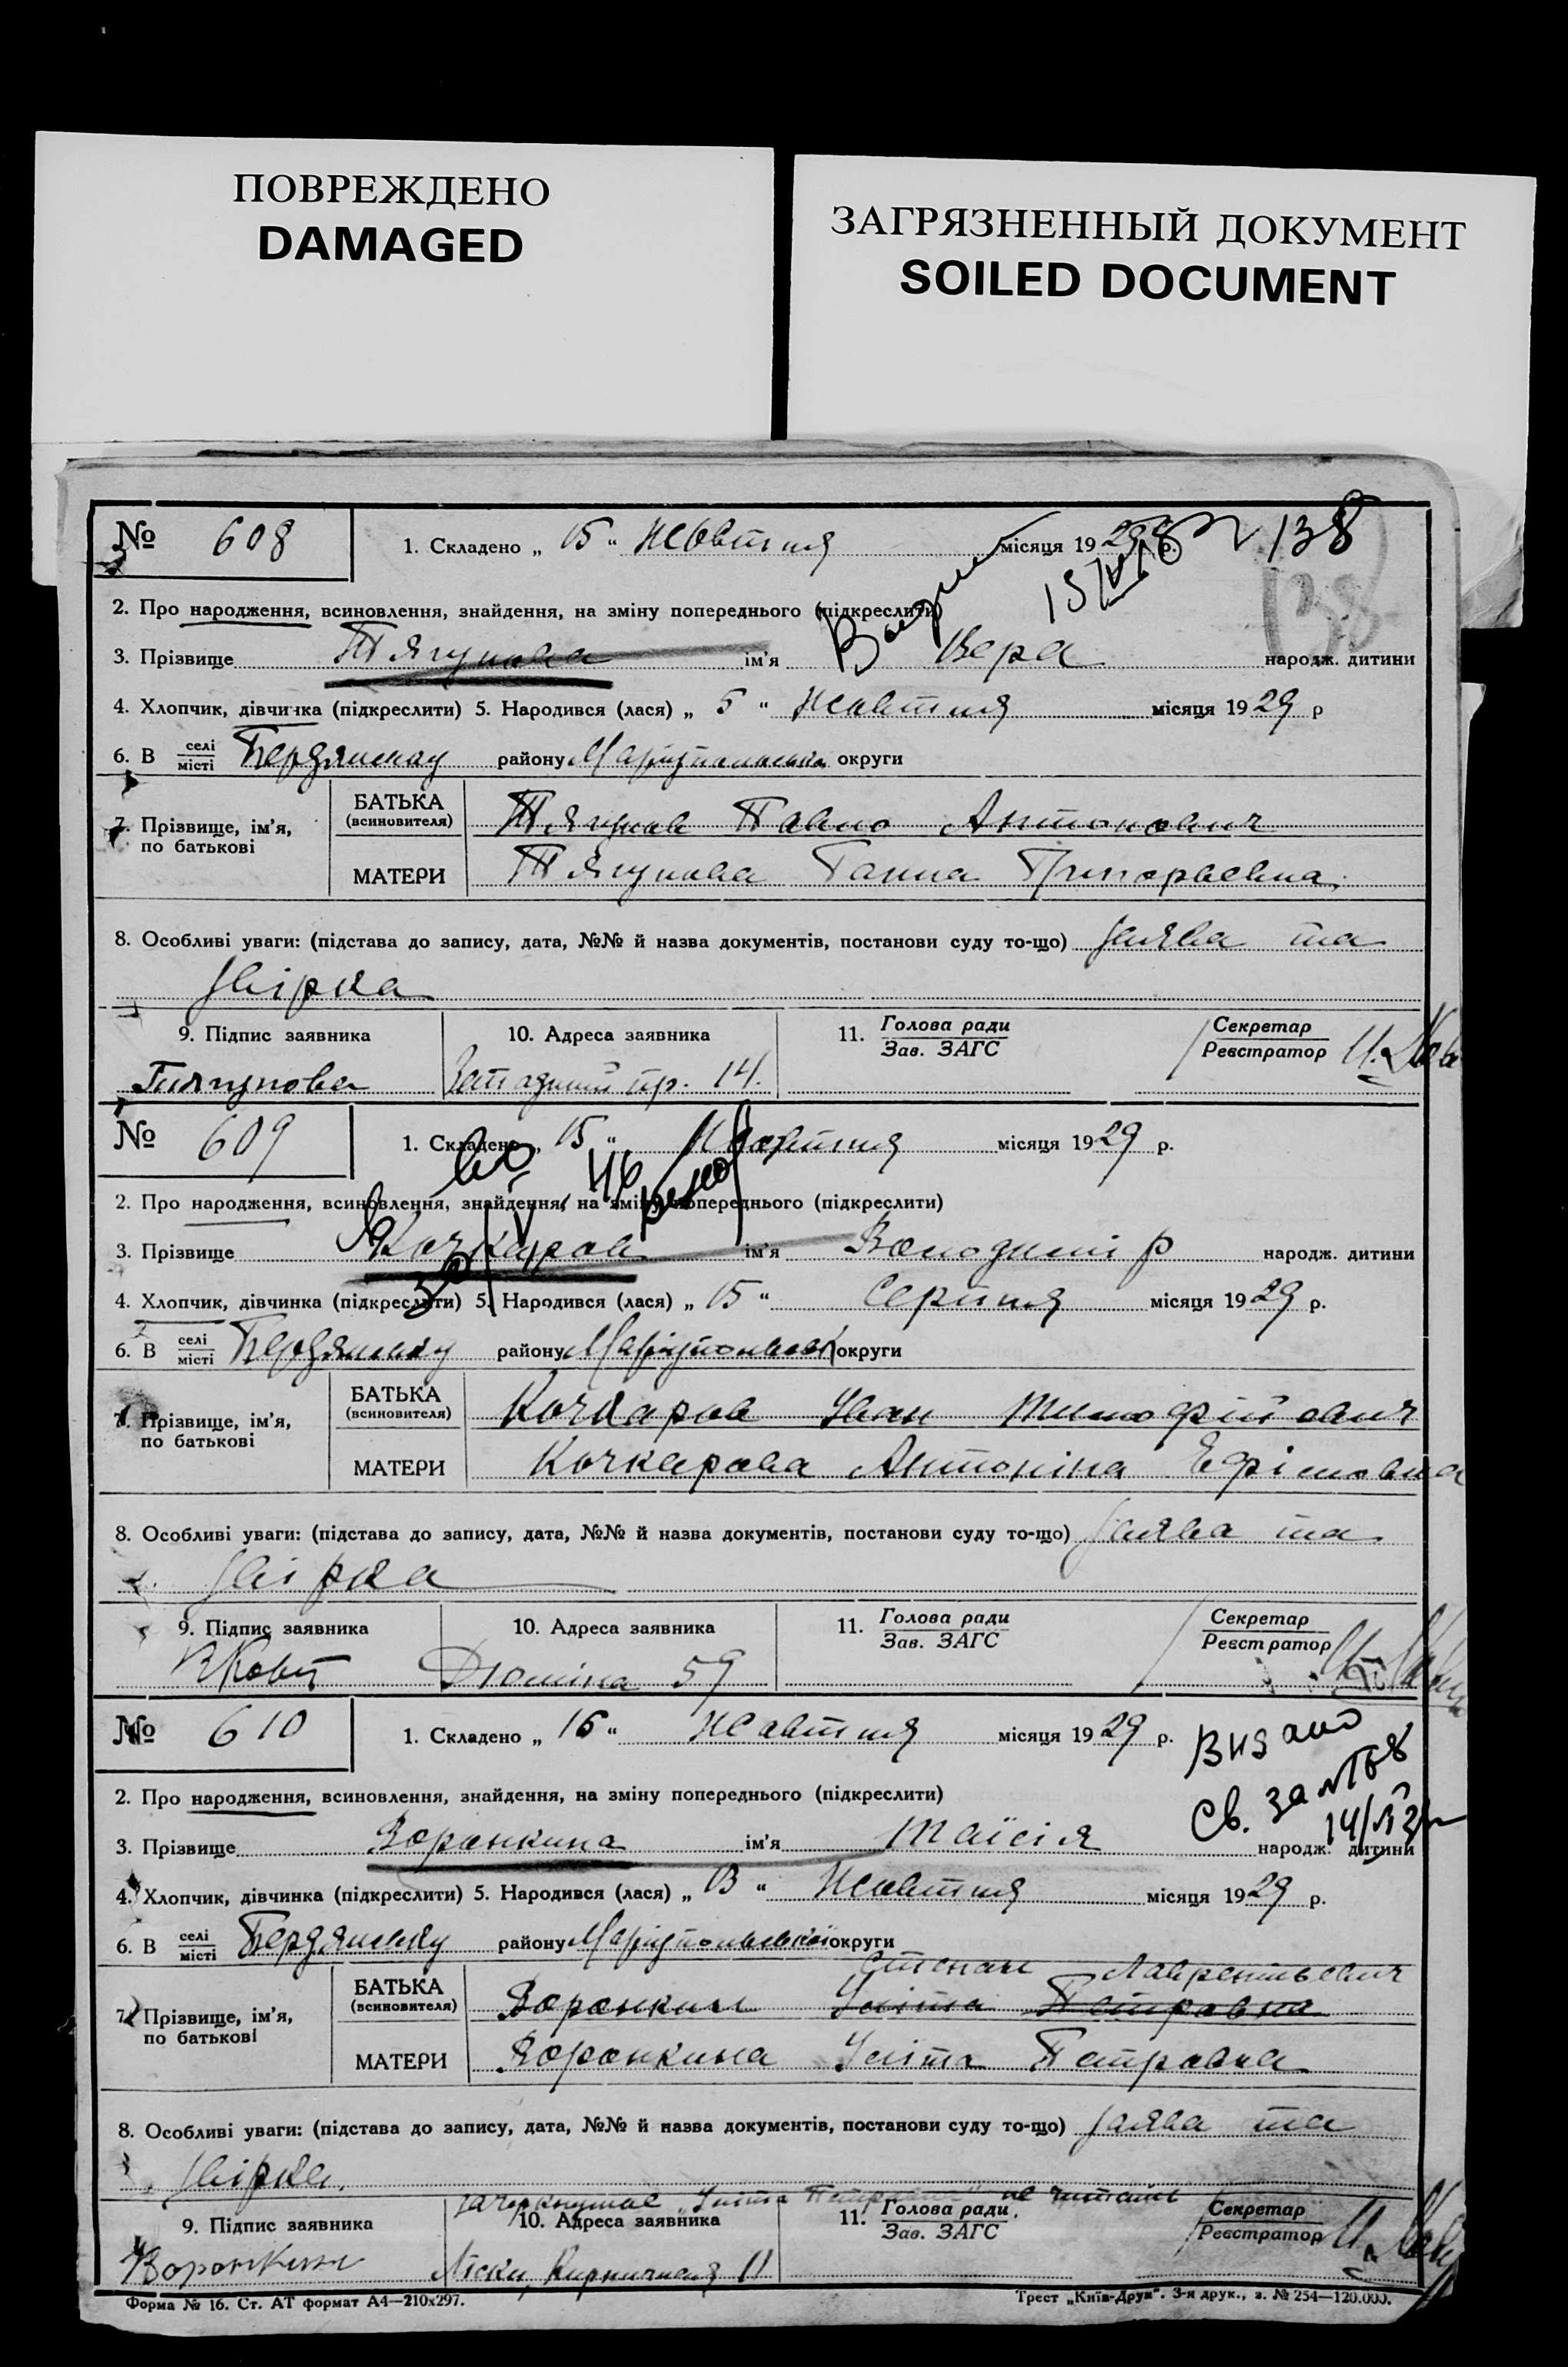 ПОВРЕЖДЕНО
DAMAGED
ЗАГРЯЗНЕННЫЙ ДОКУМЕНТ
SOILED DOCUMENT
138
138
№ 608
1. Складено „ 15 “ Жовтня місяця 1929 р.
2. Про народження, всиновлення, знайдення, на зміну попереднього (підкреслити)
3. Прізвище Тягунова ім'я Вера народж. дитини
4. Хлопчик, дівчинка (підкреслити) 5. Народився (лася) „ 5 “ Жовтня місяця 1929 р
6. В селі місті Бердянську району Маріупольської округи
7. Прізвище, ім'я, по батькові
БАТЬКА (всиновителя) Тягунов Павло Антонович
МАТЕРИ Тягунова Ганна Григорьевна
8. Особливі уваги: (підстава до запису, дата, №№ й назва документів, постанови суду то-що) Заява та
Звірка
9. Підпис заявника
10. Адреса заявника
11. Голова ради Зав. ЗАГС
Секретар Реєстратор
Тягунова
пр. 14.
№ 609
1. Складено „ 15 “ Жовтня місяця 1929 р.
2. Про народження, всиновлення, знайдення, на зміну попереднього (підкреслити)
3. Прізвище Кочкаров ім'я Володимір народж. дитини
4. Хлопчик, дівчинка (підкреслити) 5. Народився (лася) „ 15 “ Серпня місяця 1929 р.
6. В селі місті Бердянську району Маріупольськ округи
7. Прізвище, ім'я, по батькові
БАТЬКА (всиновителя) Кочкаров Іван Тимофійович
МАТЕРИ Кочкарова Антоніна Ефімовна
8. Особливі уваги: (підстава до запису, дата, №№ й назва документів, постанови суду то-що) Заява та
Звірка
9. Підпис заявника
10. Адреса заявника
11. Голова ради Зав. ЗАГС
Секретар Реєстратор
Дюміна 59
№ 610
1. Складено „ 16 “ Жовтня місяця 1929 р.
Видано
Св. за №
2. Про народження, всиновлення, знайдення, на зміну попереднього (підкреслити)
3. Прізвище Воронкина ім'я Таїсія народж. дитини
4. Хлопчик, дівчинка (підкреслити) 5. Народився (лася) „ 13 “ Жовтня місяця 1929 р.
6. В селі місті Бердянську району Маріупольської округи
Степан Лаврентьевич
7. Прізвище, ім'я, по батькові
БАТЬКА (всиновителя) Воронкин Уліта Петровна
МАТЕРИ Воронкина Уліта Петровна
8. Особливі уваги: (підстава до запису, дата, №№ й назва документів, постанови суду то-що) Заява та
Звірка.
зачеркнутое „Уліта Петровна“ не читать
9. Підпис заявника
10. Адреса заявника
11. Голова ради. Зав. ЗАГС
Секретар Реєстратор
Воронкин
Ліски, Кирпичная 11
Форма № 16. Ст. АТ формат А4—210х297.
Трест „Київ-Друк“. 3-я друк., з. № 254—120.000.